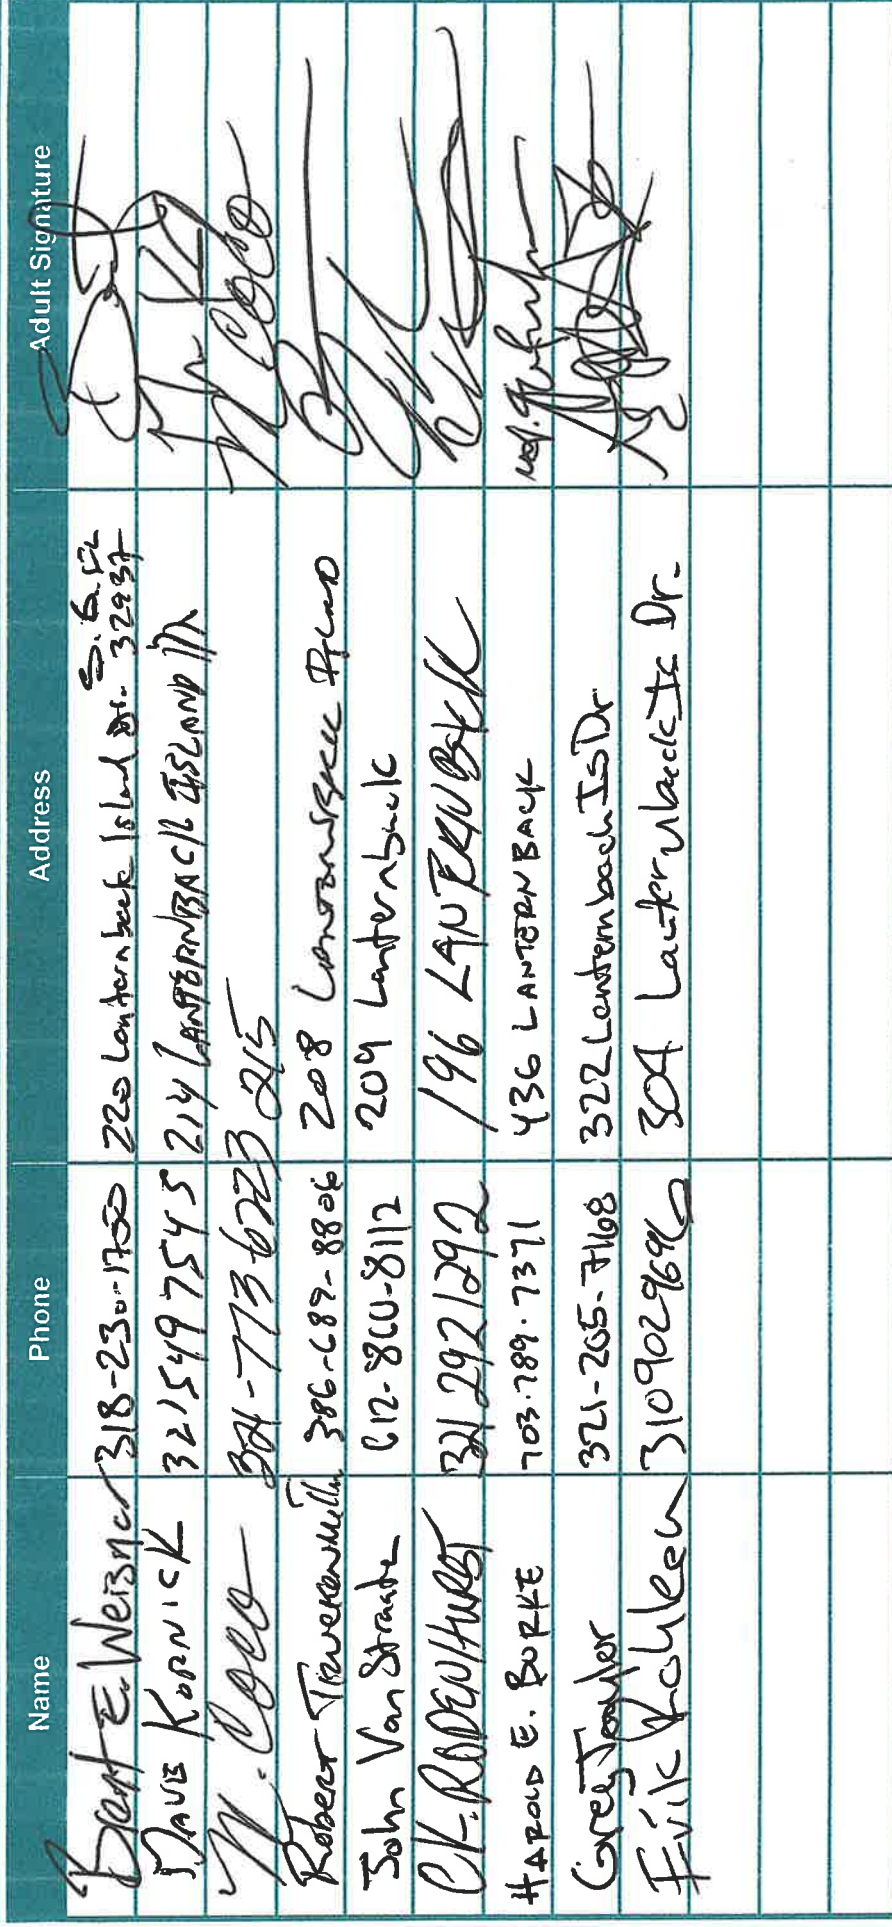 Name Phone Address Adult Signature
Brent E. Weisner 318-230-1750 220 Lanternback Island Dr. S.B. FL 32937
DAVE KORNICK 321 549 7545 214 LANTERNBACK ISLAND DR
M. Coco 321-773 6723 215 M Coco
Robert 386-689-8806 208 Lanternback Island
John Van Straate 612-860-8112 209 Lanternback
C.K. RODENHURST 321 292 1292 196 LANTERNBACK
HAROLD E. BURKE 703.789.7371 436 LANTERNBACK
Greg 321-265-7168 322 Lanternback Is Dr
Erik 3109029696 304 Lanternback Is Dr.